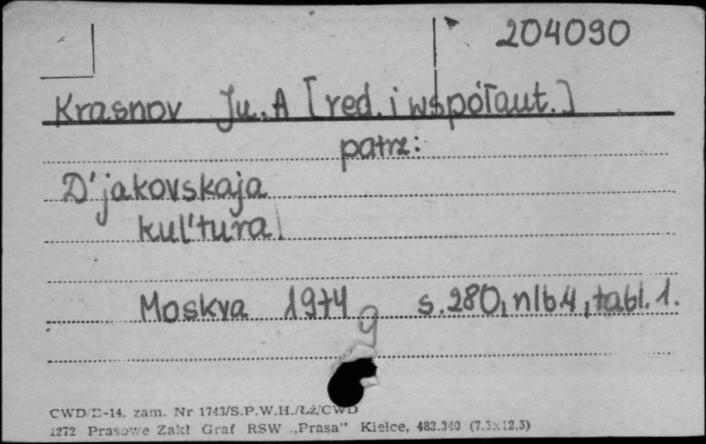 204090
Krasnov Ju. A [red. i współaut.]
patrz:
D'jakovskaja
kul'tura
Moskva 1974 s. 280, nlb 4, tabl. 1.
g
CWD/E-14. zam. Nr 1743/S.P.W.H./ŁŻ/CWD
1272 Prasowe Zakł Graf RSW „Prasa" Kielce, 483.340 (7.5x12.5)